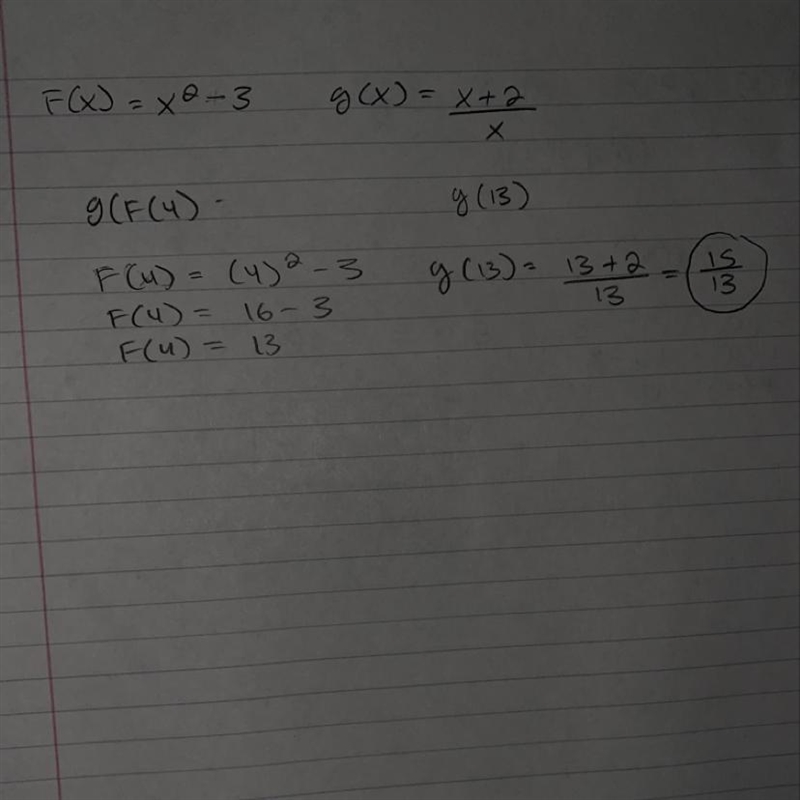 F(x) = x² - 3    g(x) = (x+2)/x
g(F(4) -    g(13)
F(4) = (4)² - 3    g(13) = (13+2)/13 = 15/13
F(4) = 16 - 3
F(4) = 13